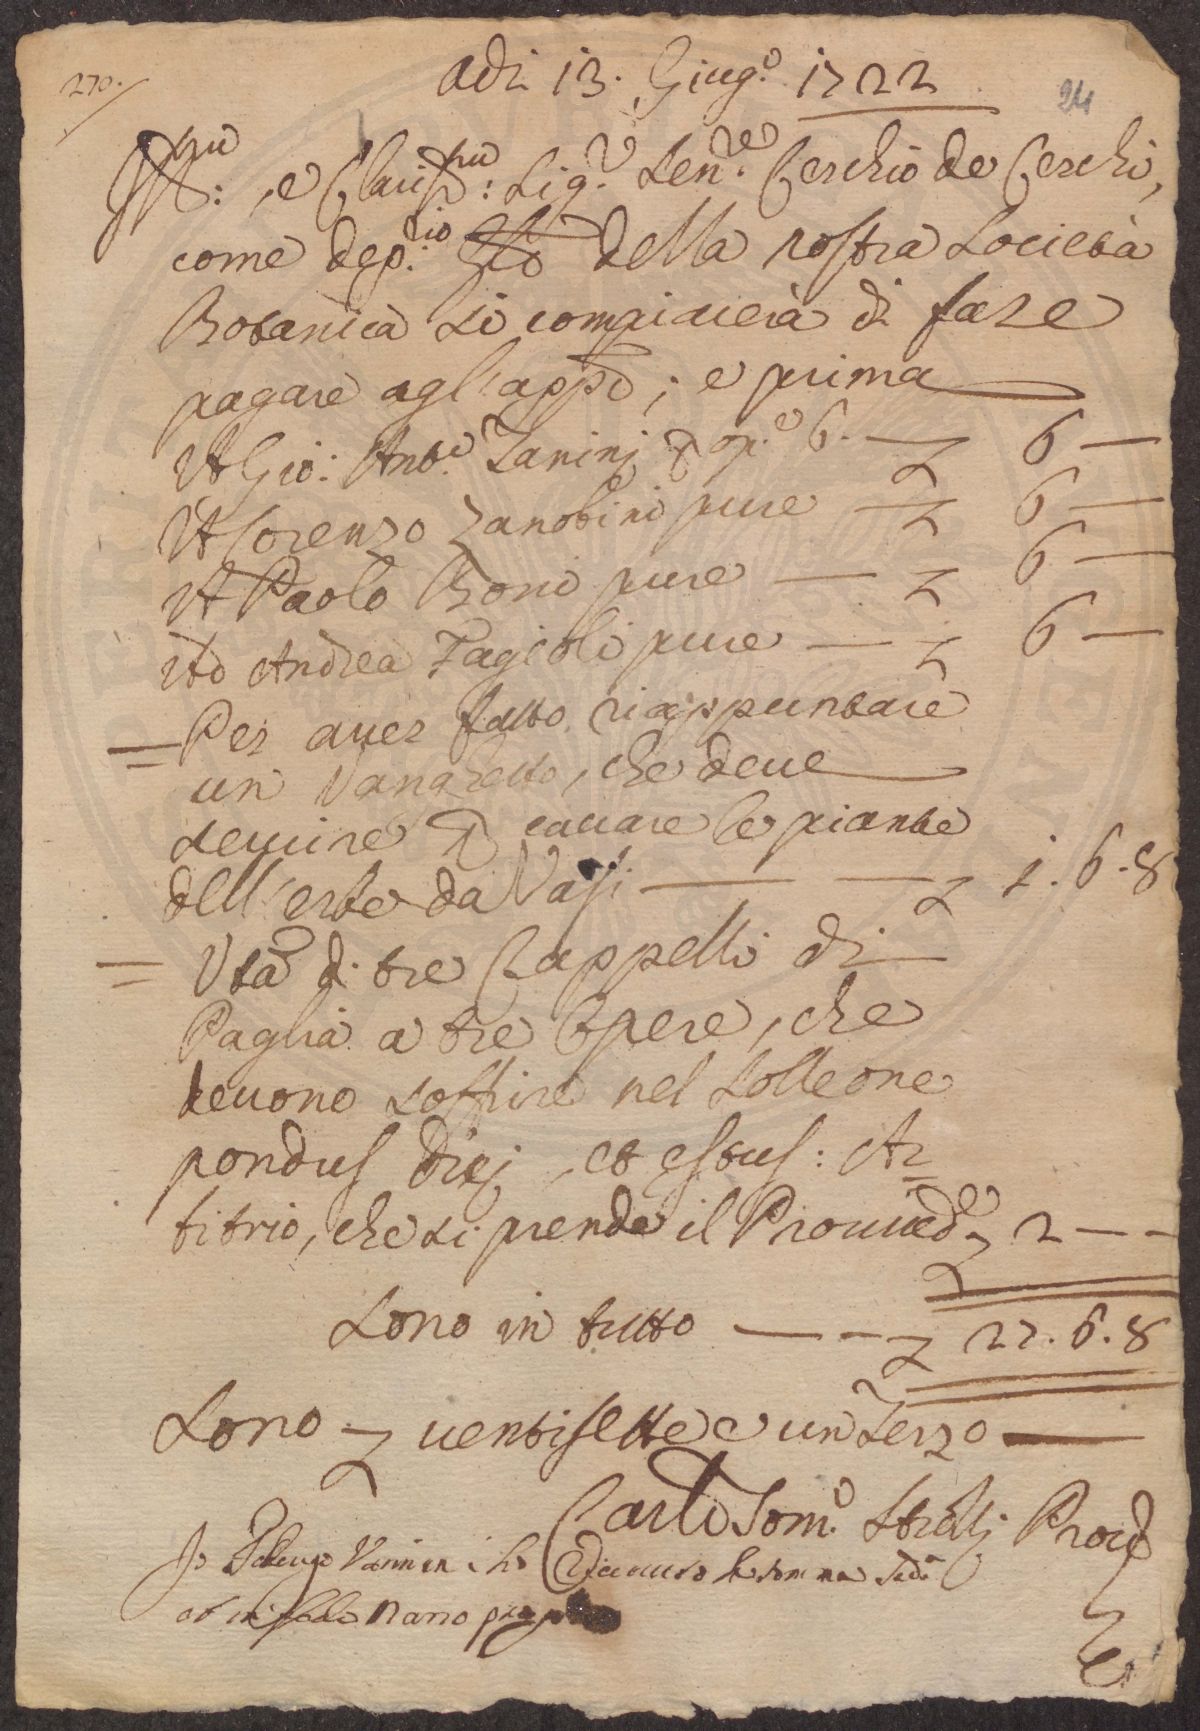 270.
24
Adi 13. Giug.o 1722
Ill.mo: e Clariss.mo: Sig.r Sen.re Cerchio de Cerchi,
come dep.rio della nostra Società
Botanica si compiacerà di fare
pagare agl'app.o; e prima
A Gio: Ant.o Zanini p op.e 6. — 6 —
A Lorenzo Zanobini pure — 6 —
A Paolo Boni pure — 6 —
Ad Andrea Fagioli pure — 6 —
= Per aver fatto riappuntare
un Vanghetto, che deve
servire p cavare le piante
dell'erbe da Vasi — — 1. 6. 8
= Vta di tre Cappelli di
Paglia a tre Opere, che
devono soffrire nel Solleone
pondus diej, et estus: Ar=
bitrio, che si prende il Provved.e 2 — —
Sono in tutto — — 27. 6. 8
Sono ventisette e un Terzo —
Carlo Tom.o Strozzj Proved
Io ho Riceuuto la somma
Mano